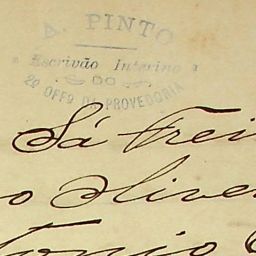 A. PINTO
Escrivão Interino
2º OFFº DA PROVEDORIA
Sá Frei
o Olivei
tonio